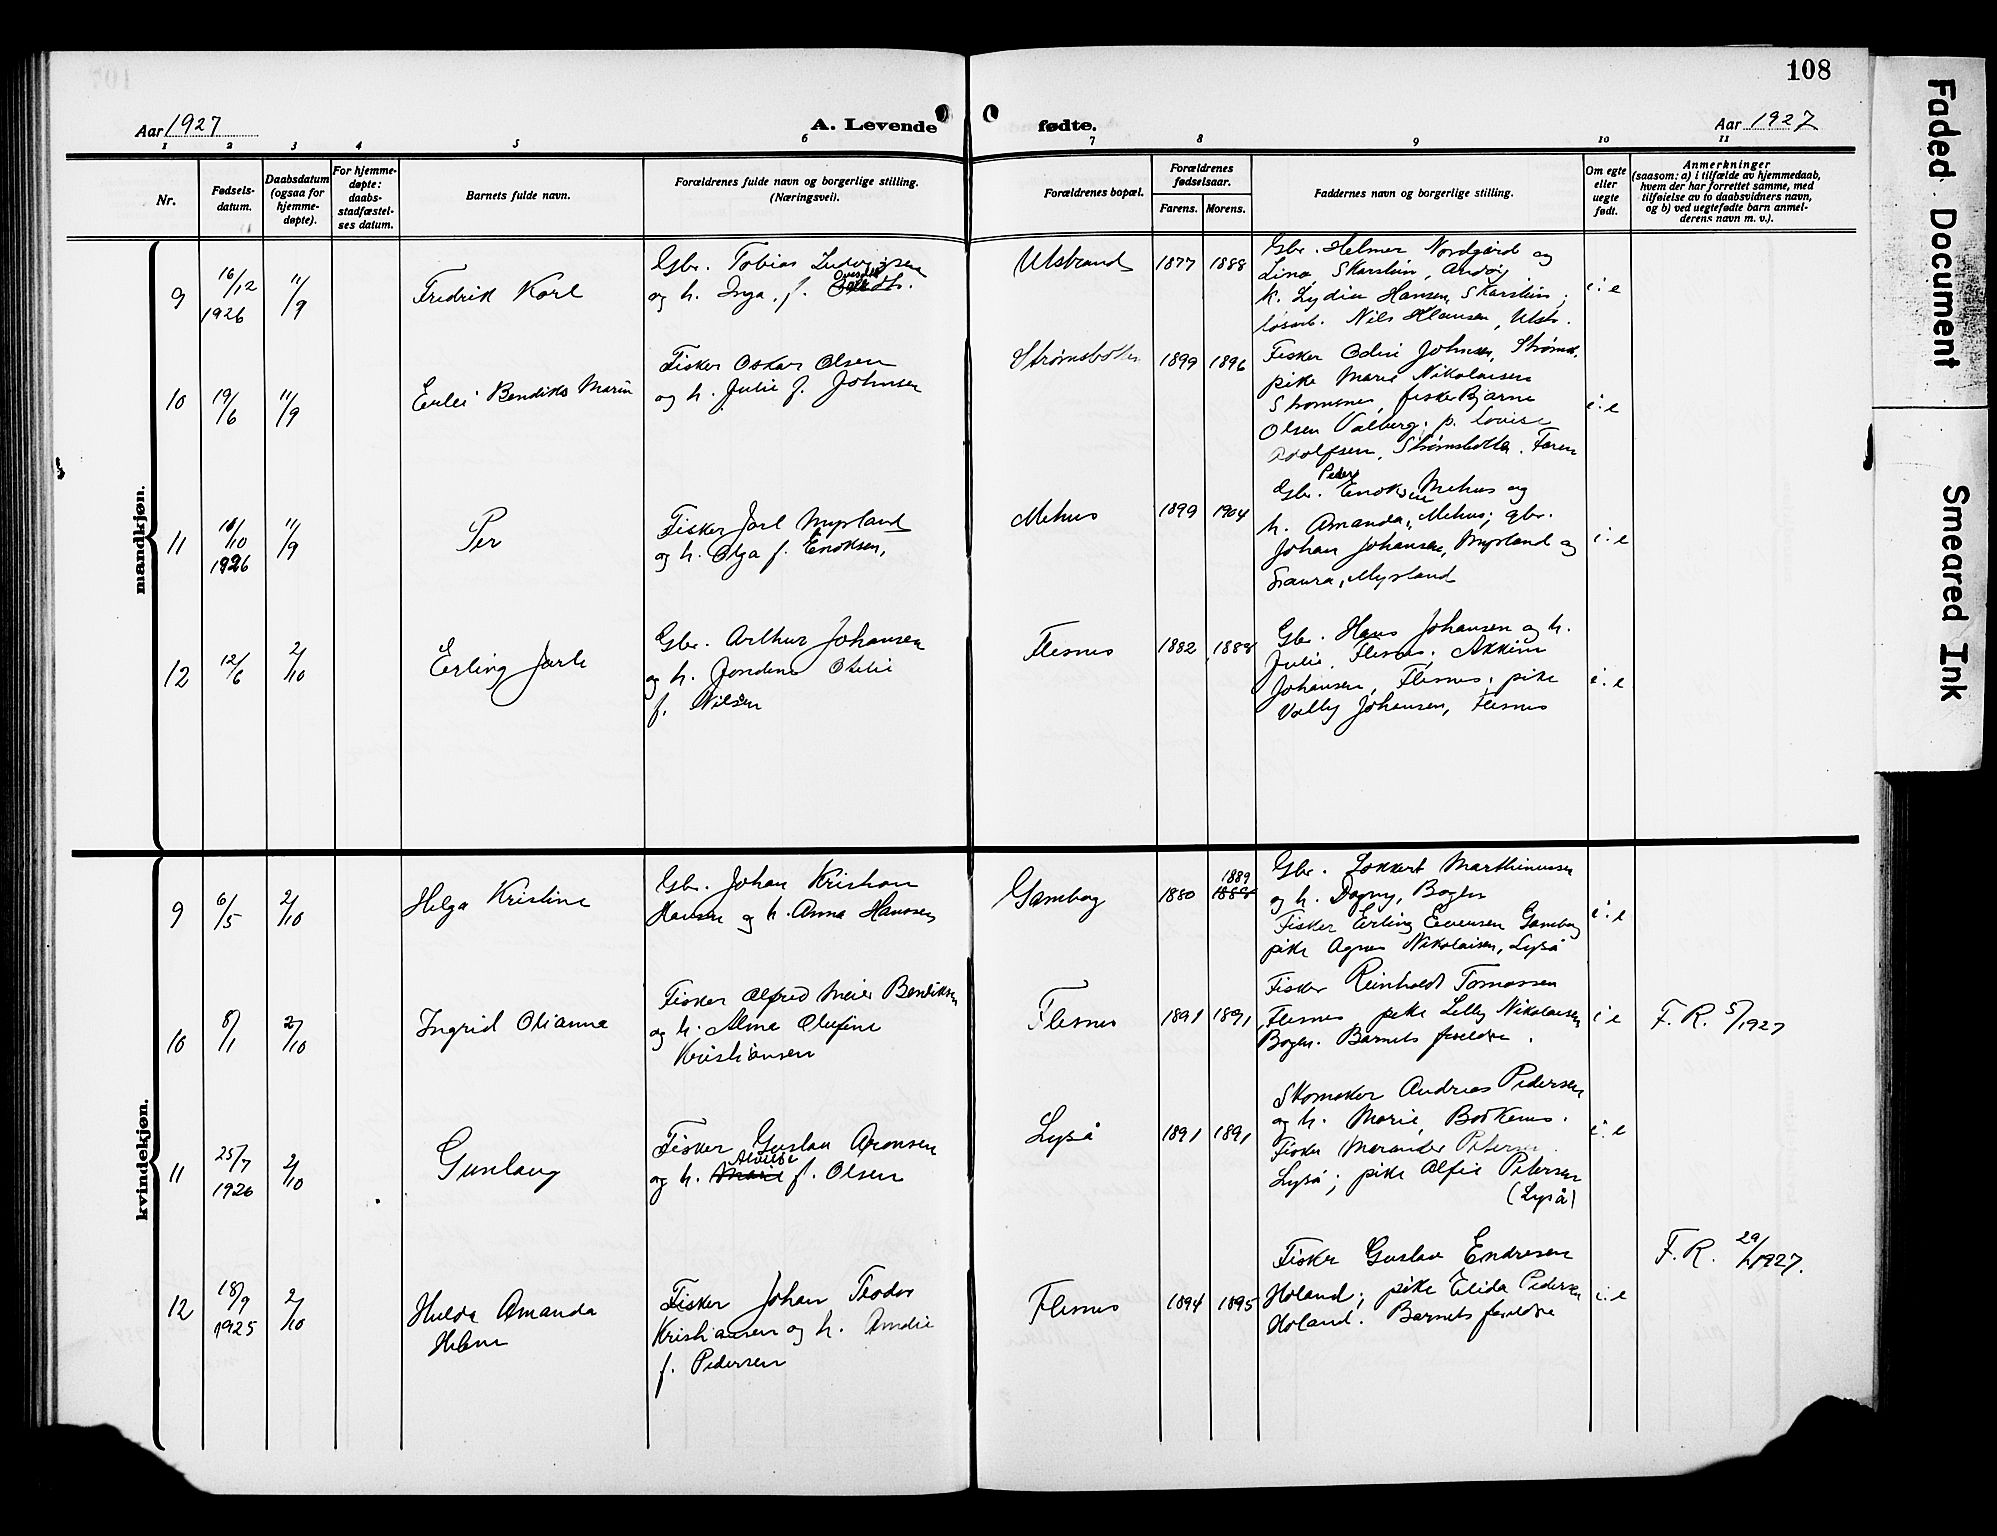 108
Aar 1927
A. Levende fødte.
Aar 1927
1 2 3 4 5 6 7 8 9 10 11
Nr.
Fødsels-
datum.
Daabsdatum
(ogsaa for
hjemme-
døpte).
For hjemme-
døpte:
daabs-
stadfæstel-
ses datum.
Barnets fulde navn.
Forældrenes fulde navn og borgerlige stilling.
(Næringsvei).
Forældrenes bopæl.
Forældrenes
fødselsaar.
Farens. Morens.
Faddernes navn og borgerlige stilling.
Om egte
eller
uegte
født.
Anmerkninger
(saasom: a) i tilfælde av hjemmedaab,
hvem der har forrettet samme, med
tilføielse av to daabsvidners navn,
og b) ved uegtefødte barn anmel-
derens navn m. v.).
mandkjøn.
9
16/12
1926
11/9
Fredrik Karl
Gbr. Tobias Ludvigsen
og h. Inga, f.
Utstrand
1877 1888
Gbr. Helmer Nordgård og
Lina Skarstein, Andøy
k. Lydia Hansen, Skarstein;
løsarb. Nils Hansen, Utstr.
i: e
10
19/6
11/9
Bendiks Marin
Fisker Oskar Olsen
og h. Julie f. Johnsen
Strømsbotn
1899 1896
Fisker Odin Johnsen, Strømsb.
pike Marie Nikolaisen
Strømsnes, fisker Bjarne
Olsen Valberg; p. Lovise
Adolfsen, Strømsbotn. Faren
i: e
11
10/10
1926
11/9
Per
Fisker Jarl Myrland
og h. Olga f. Enoksen,
Mehus
1899 1904
Peder
Gbr. Enoksen Mehus og
h. Amanda, Mehus; gbr.
Johan Johansen, Myrland og
Laura, Myrland
i: e
12
12/6
2/10
Erling Jarle
Gbr. Arthur Johansen
og h. Jondine Otelie
f. Nilsen
Flesnes
1882 1888
Gbr. Hans Johansen og h.
Julie, Flesnes; Akkim
Johansen, Flesnes, pike
Vally Johansen, Flesnes
i: e
kvindekjøn.
9
6/5
2/10
Helga Kristine
Gbr. Johan Kristian
Hansen og h. Anna Hansen
Gambog
1880 1889
1888
Gbr. Lokkert Marthinussen
og h. Dagny, Bogen
Fisker Erling Evensen Gambog
pike Agnes Nikolaisen, Lyså
i: e
10
8/1
2/10
Ingrid Olianna
Fisker Alfred Meier Bendiksen
og h. Alma Olufine
Kristiansen
Flesnes
1891 1891
Fisker Reinholdt Tomassen
Flesnes, pike Lilly Nikolaisen
Bogen. Barnets foreldre.
i: e
F. R. 5/1927
11
25/7
1926
2/10
Gunlaug
Fisker Gustav Aronsen
Alvilde
og h. Marie f. Olsen
Lyså
1891 1891
Skomaker Andreas Pedersen
og h. Marie, Botkenes.
Fisker Merander Petersen
Lyså; pike Alfie Petersen
(Lyså)
i: e
12
18/9
1925
2/10
Hulda Amanda
Helene
Fisker Johan Teodor
Kristiansen og h. Amdie
f. Pedersen
Flesnes
1894 1895
Fisker Gustav Endresen
Holand; pike Elida Pedersen
Holand. Barnets foreldre
i: e
F. R. 29/1927.
Faded Document
Smeared Ink